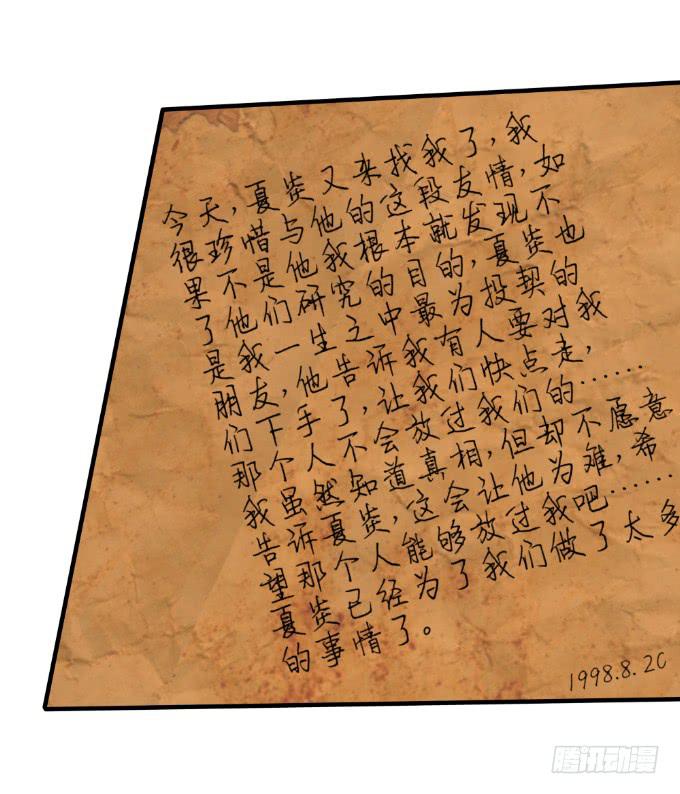 今天,夏炎又来找我了,我
很珍惜与他的这段友情,如
果不是他我根本就发现不
了他们研究的目的,夏炎也
是我一生之中最为投契的
朋友,他告诉我有人要对我
们下手了,让我们快点走,
那个人不会放过我们的……
我虽然知道真相,但却不愿意
告诉夏炎,这会让他为难,希
望那个人能够放过我吧……
夏炎已经为了我们做了太多
的事情了。
1998.8.20
腾讯动漫